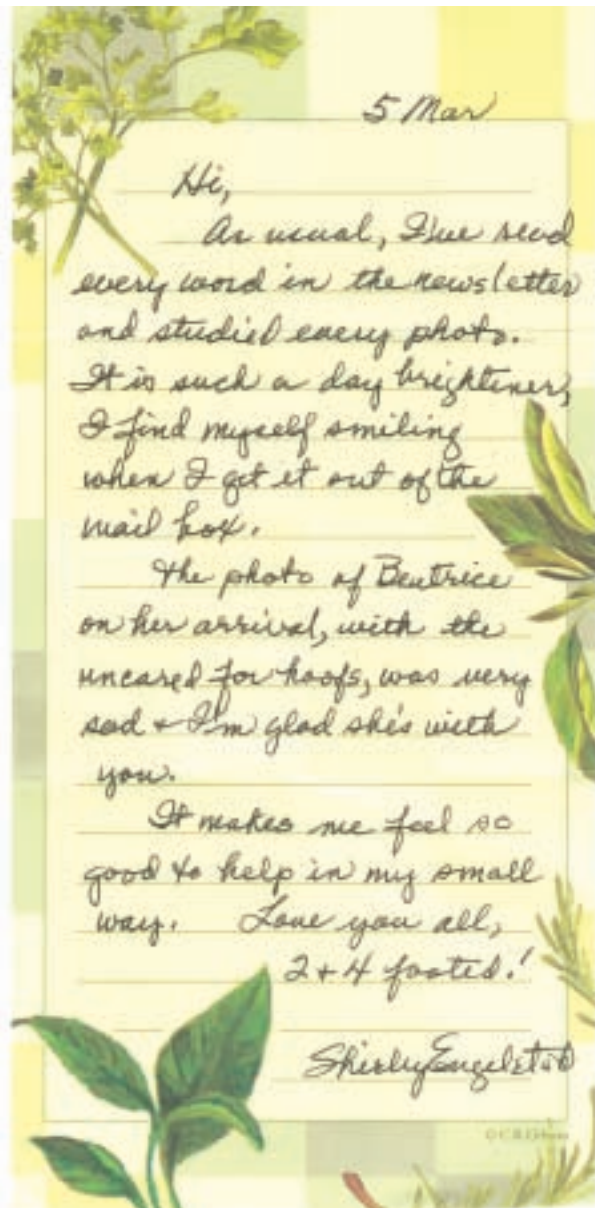 5 Mar
Hi,
As usual, I've read
every word in the newsletter
and studied every photo.
It is such a day brightener,
I find myself smiling
when I get it out of the
mail box.
The photo of Beatrice
on her arrival, with the
uncared for hoofs, was very
sad + I'm glad she's with
you.
It makes me feel so
good to help in my small
way. Love you all,
2 + 4 footed!
Shirley